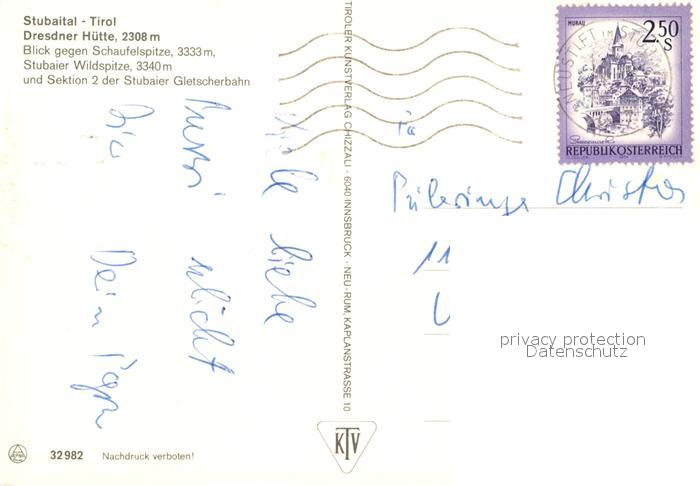 Stubaital - Tirol
Dresdner Hütte, 2308 m
Blick gegen Schaufelspitze, 3333 m,
Stubaier Wildspitze, 3340 m
und Sektion 2 der Stubaier Gletscherbahn
Viele liebe
schickt
Dir Dein Papa
TIROLER KUNSTVERLAG CHIZZALI · 6040 INNSBRUCK - NEU-RUM, KAPLANSTRASSE 10
MURAU
2.50
S
REPUBLIK ÖSTERREICH
NEUSTIFT IM
Christa
11
privacy protection
Datenschutz
KTV
32982 Nachdruck verboten!